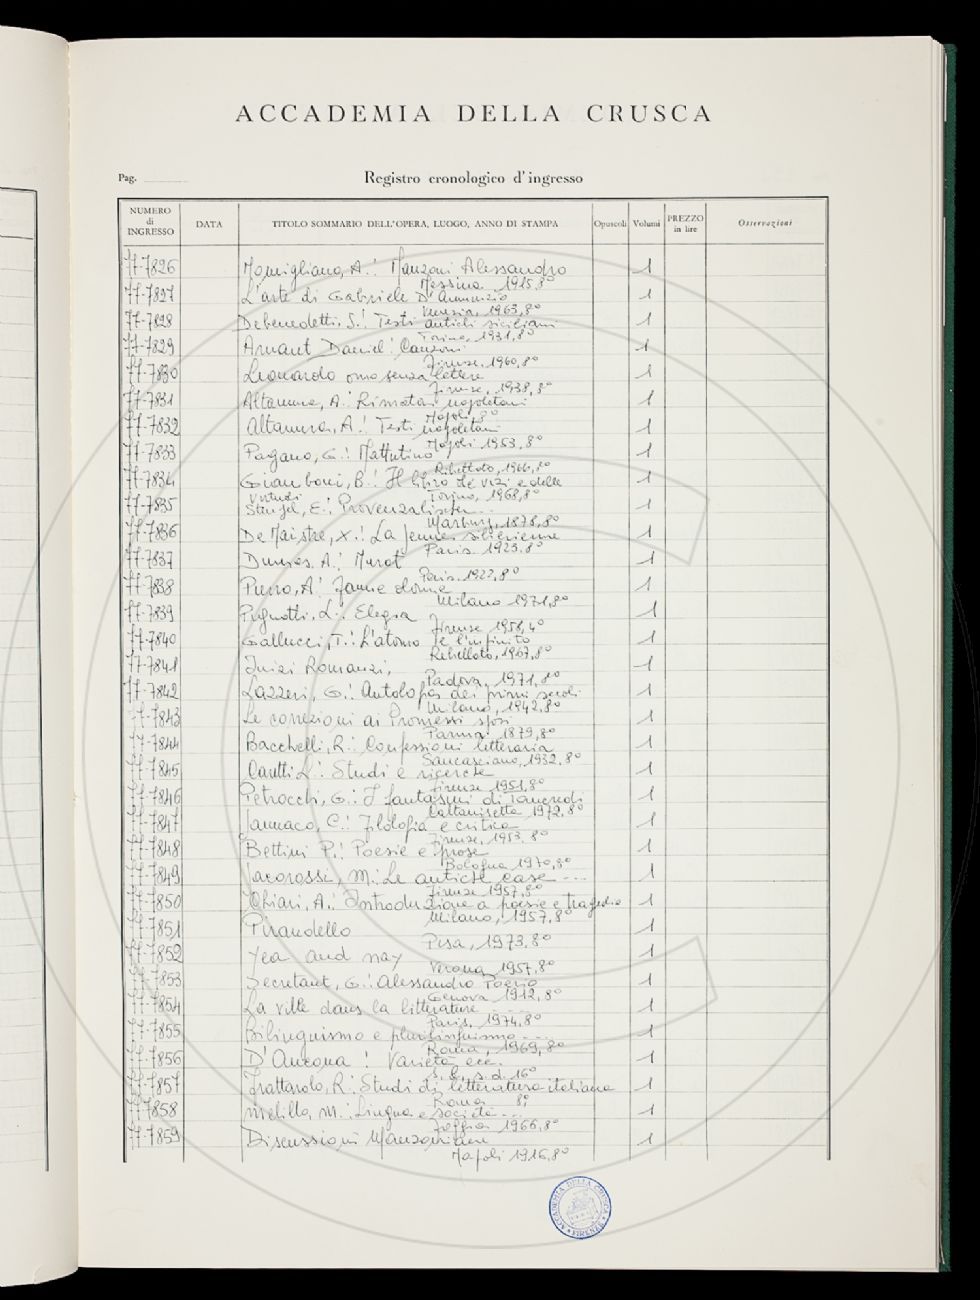 ACCADEMIA DELLA CRUSCA
Pag.
Registro cronologico d'ingresso
NUMERO di INGRESSO DATA TITOLO SOMMARIO DELL'OPERA, LUOGO, ANNO DI STAMPA Opuscoli Volumi PREZZO in lire Osservazioni
77-7826 Momigliano, A.: Manzoni Alessandro 1
Messina 1915, 8°
77-7827 L'arte di Gabriele D'Annunzio 1
Venezia, 1963, 8°
77-7828 Debenedetti, S.: Testi antichi siciliani 1
Torino, 1931, 8°
77-7829 Arnaut Daniel: Canzoni 1
Firenze, 1960, 8°
77-7830 Leonardo omo senza lettere 1
Firenze, 1938, 8°
77-7831 Altamura, A.: Rimatori napoletani 1
Napoli, 8°
77-7832 Altamura, A.: Testi napoletani 1
Napoli 1953, 8°
77-7833 Pagano, G.: Mattutino 1
Rebellato, 1966, 8°
77-7834 Giamboni, B.: Il libro de' vizi e delle 1
virtudi Torino, 1968, 8°
77-7835 Stengel, E.: 1
Marburg, 1878, 8°
77-7836 De Maistre, X.: La jeune sibérienne 1
Paris. 1923. 8°
77-7837 Dumas. A.: Murat 1
Paris. 1922, 8°
77-7838 Porro, A.: donne 1
Milano 1971, 8°
77-7839 Pignotti, L.: Elegia 1
Firenze 1958, 4°
77-7840 Gallucci, T.: L'atomo e l'infinito 1
Rebellato, 1967, 8°
77-7841 Inizi Romanzi, 1
Padova, 1971, 8°
77-7842 Lazzeri, G.: Antologia dei primi secoli 1
Milano, 1942, 8°
77-7843 Le correzioni ai Promessi sposi 1
Parma 1879, 8°
77-7844 Bacchelli, R.: Confessioni letteraria 1
Sancasciano, 1932, 8°
77-7845 Caretti L.: Studi e ricerche 1
Firenze 1951, 8°
77-7846 Petrocchi, G.: I fantasmi di Tancredi 1
Caltanisetta 1972, 8°
77-7847 Jannaco, C.: Filologia e critica 1
Firenze, 1953. 8°
77-7848 Bettini P.: Poesie e prose 1
Bologna 1970, 8°
77-7849 Iacorossi, M.: Le antiche case ... 1
Firenze 1957, 8°
77-7850 Chiari, A.: Introduzione a poesie e tragedie 1
Milano, 1957, 8°
77-7851 Pirandello 1
Pisa, 1973, 8°
77-7852 Yea and nay 1
Verona 1957, 8°
77-7853 Secretant, G.: Alessandro Poerio 1
Genova 1912, 8°
77-7854 La ville dans la littérature 1
Paris, 1974, 8°
77-7855 Bilinguismo e plurilinguismo ... 1
Roma, 1969, 8°
77-7856 D'Ancona: Varietà ecc. 1
s. l., s. d. 16°
77-7857 Frattarolo, R.: Studi di letteratura italiana 1
Roma 8°
77-7858 Melillo, M.: Lingua e società ... 1
Foggia 1966, 8°
77-7859 Discussioni Manzoniane 1
Napoli 1916, 8°
ACCADEMIA DELLA CRUSCA FIRENZE